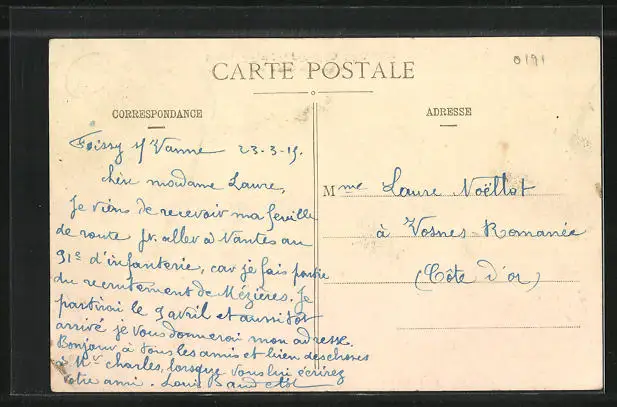 0191
CARTE POSTALE
CORRESPONDANCE
ADRESSE
Foissy s/ Vanne 23-3-15.
chère madame Laure,
Je viens de recevoir ma feuille
de route pr. aller à Nantes au
91e d'infanterie, car je fais partie
du recrutement de Mézières. Je
partirai le 9 avril et aussitôt
arrivé je vous donnerai mon adresse.
Bonjour à tous les amis et bien des choses
à Mr charles, lorsque vous lui écrirez
votre ami. Louis
Mme Laure Noëllat
à Vosnes-Romanée
(Côte d'or)